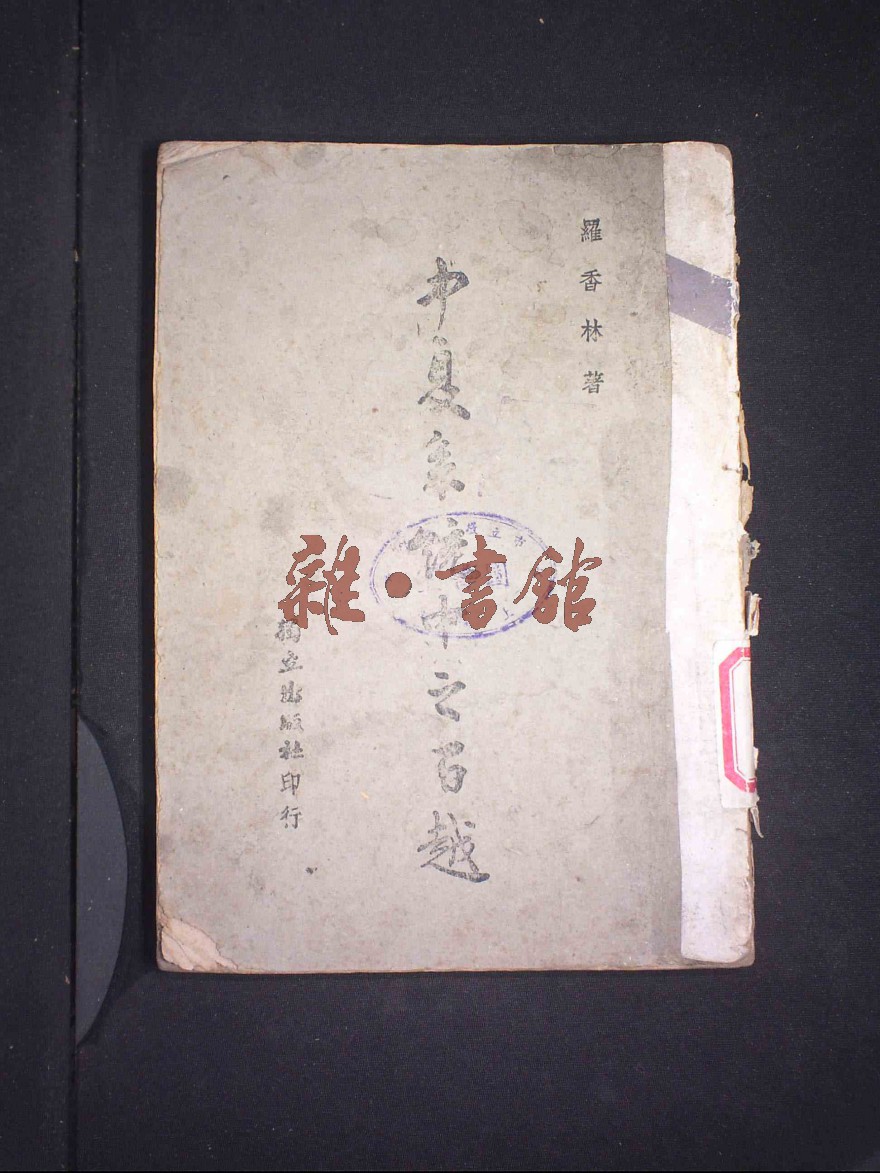 羅香林著
中夏系統中之百越
獨立出版社印行
雜·書館